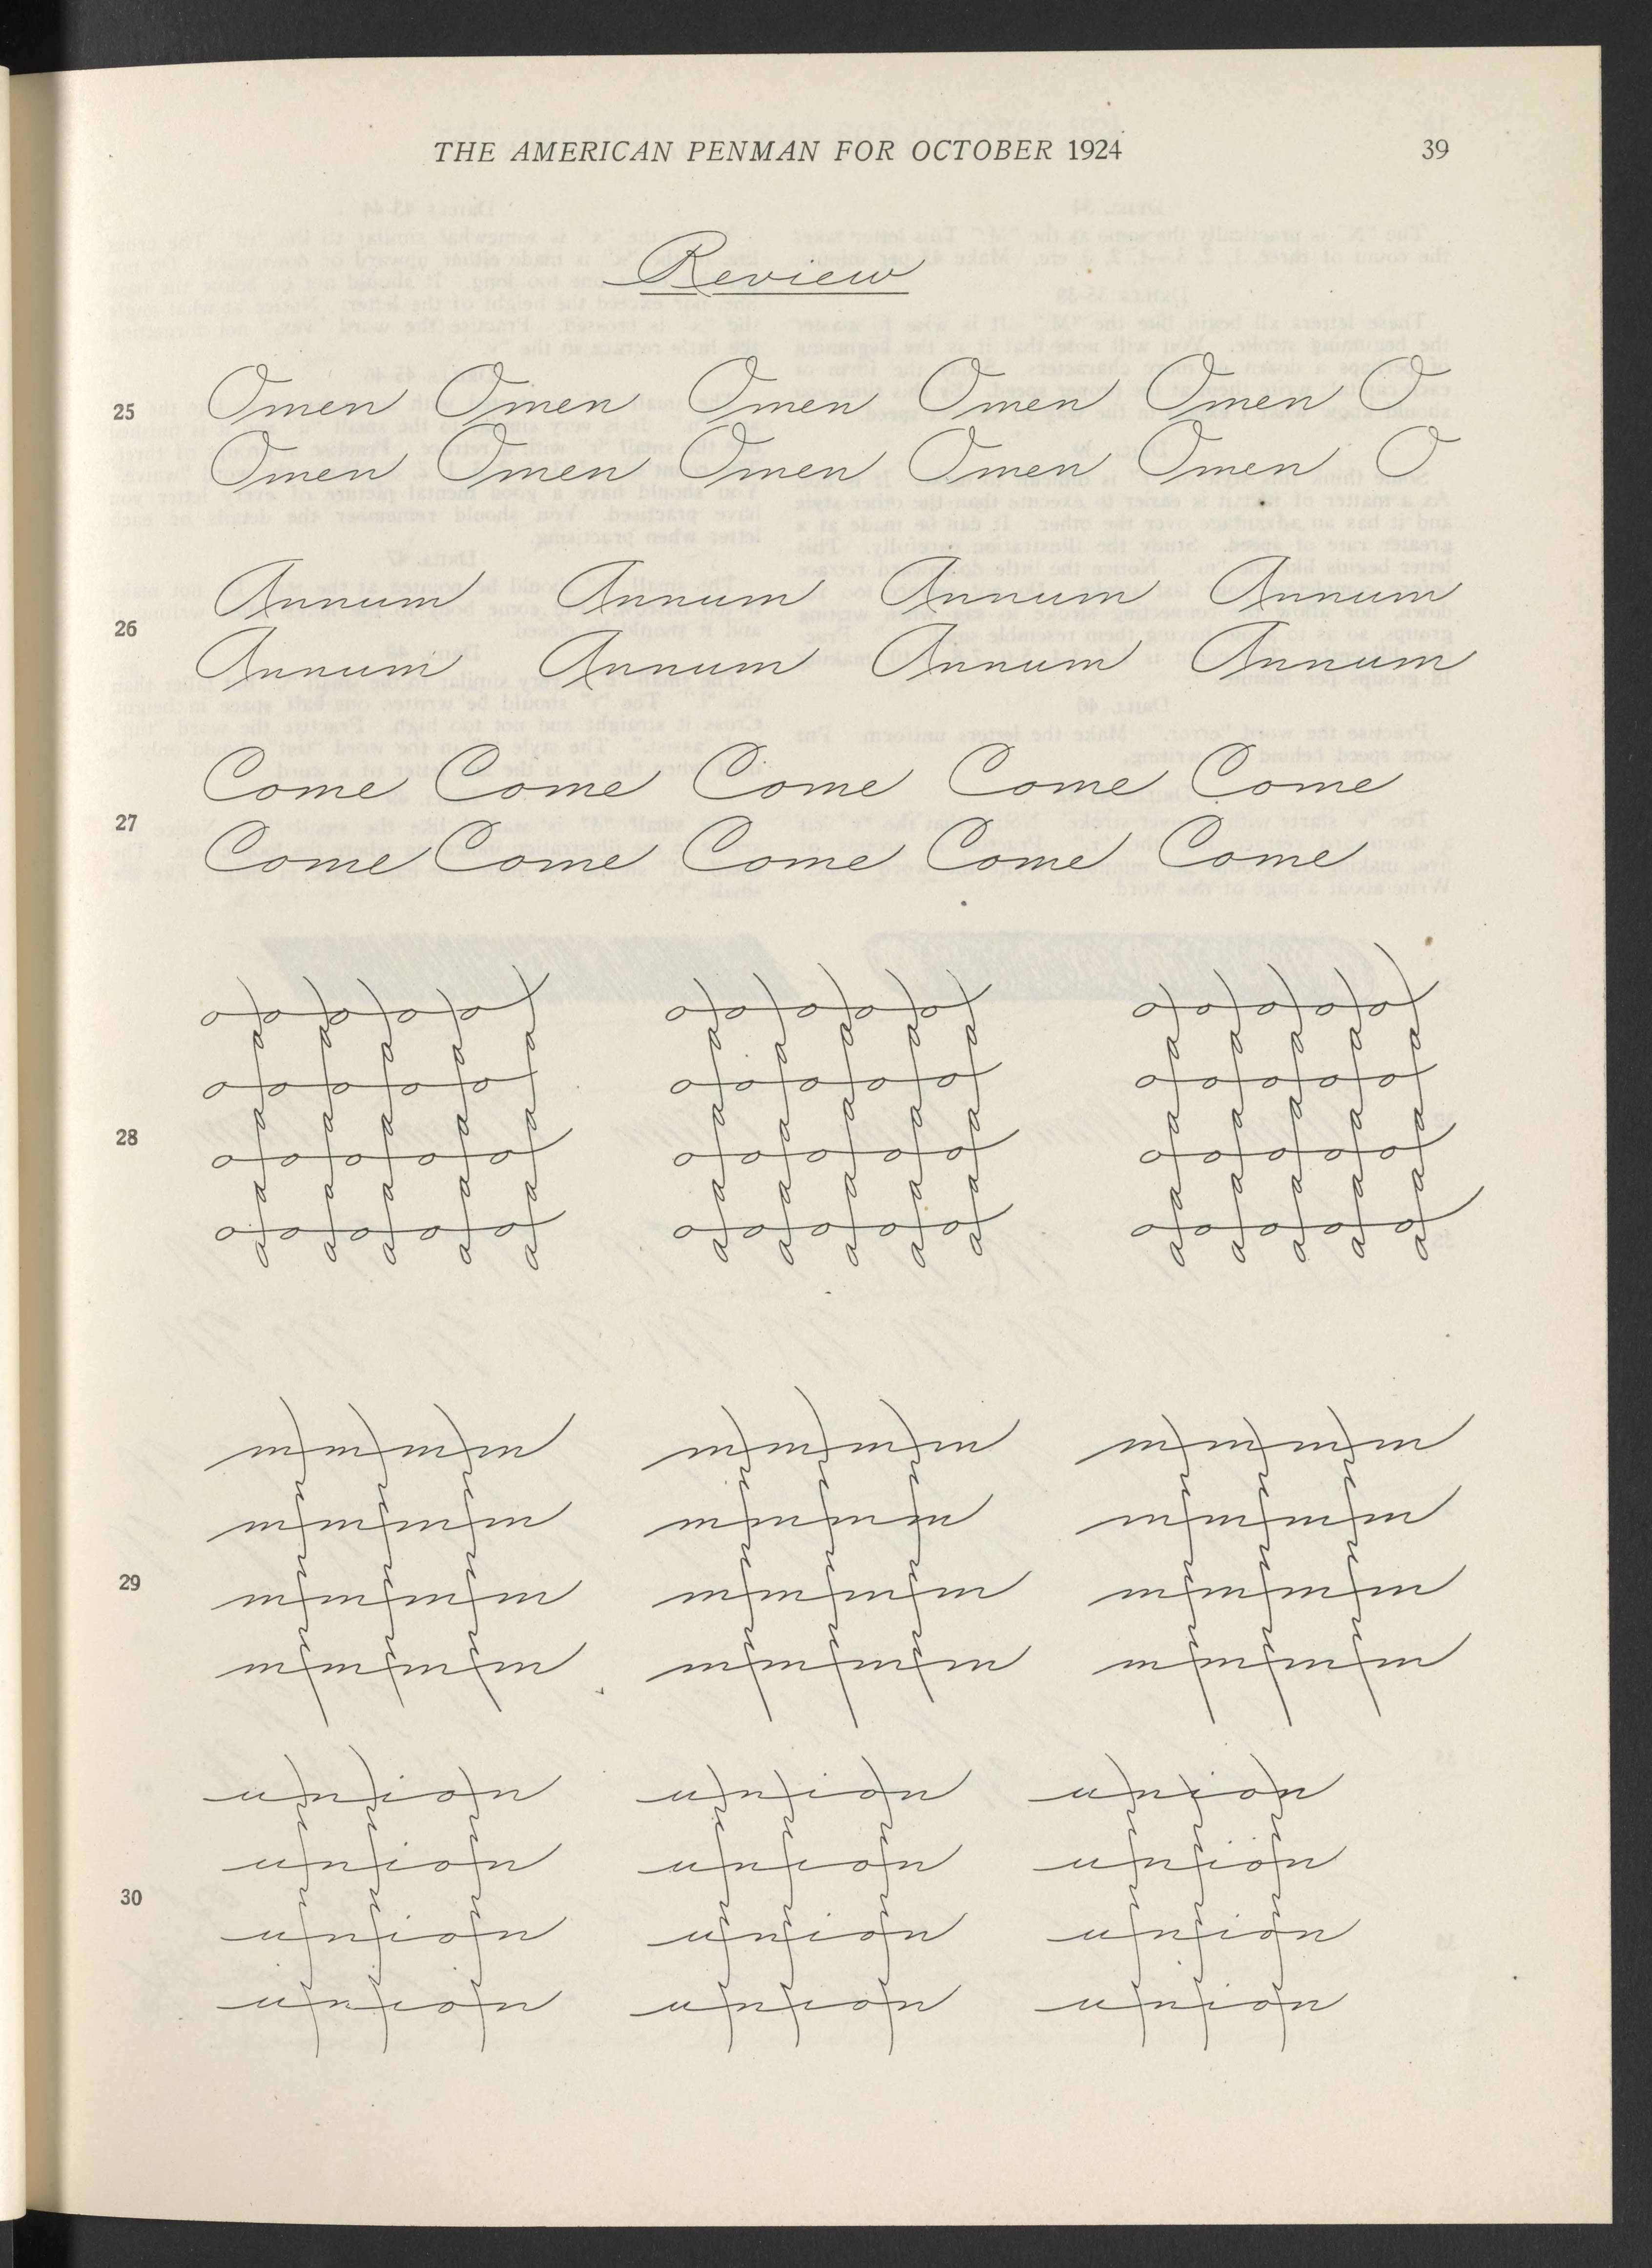 THE AMERICAN PENMAN FOR OCTOBER 1924 39
Review
25 Omen Omen Omen Omen Omen O
Omen Omen Omen Omen Omen O
26 Annum Annum Annum Annum
Annum Annum Annum Annum
27 Come Come Come Come Come
Come Come Come Come Come
28
o o o o o o o o o o o o o o o
a a a a a a a a a a a a a a a
o o o o o o o o o o o o o o o
a a a a a a a a a a a a a a a
o o o o o o o o o o o o o o o
a a a a a a a a a a a a a a a
o o o o o o o o o o o o o o o
a a a a a a a a a a a a a a a
29
m m m m m m m m m m m m
m m m m m m m m m m m m
m m m m m m m m m m m m
m m m m m m m m m m m m
30
union union union
union union union
union union union
union union union